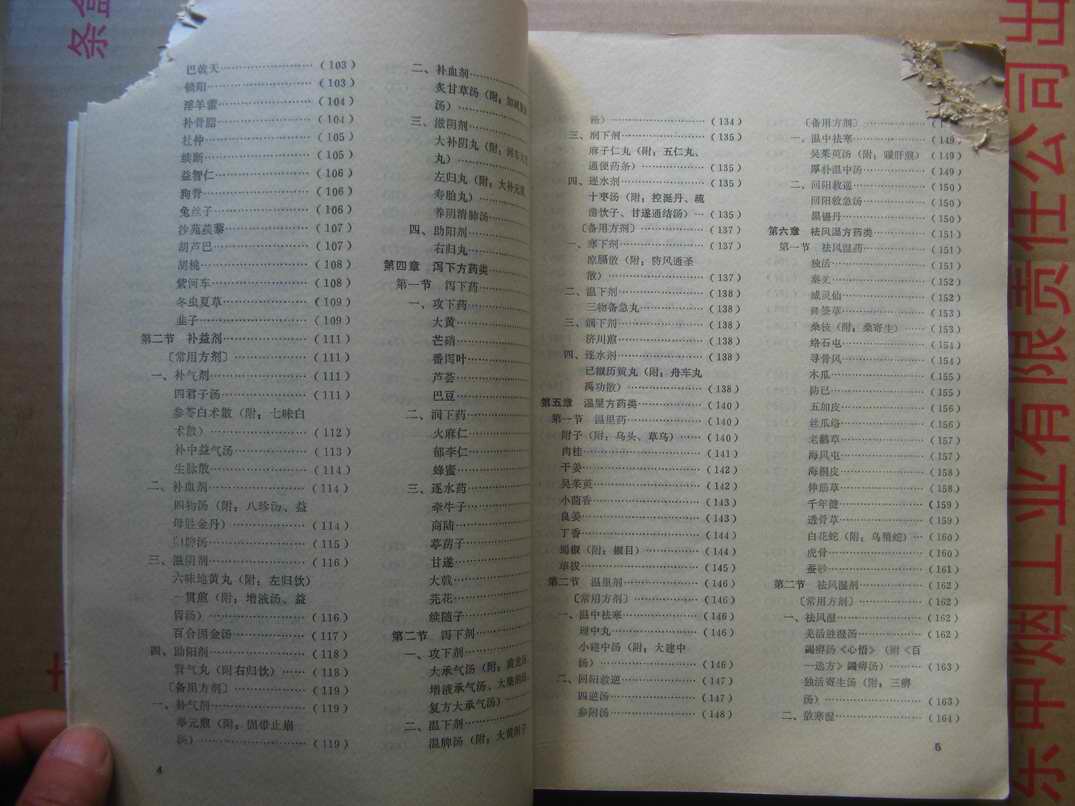 巴戟天……(103)
锁阳……(103)
淫羊藿……(104)
补骨脂……(104)
杜仲……(105)
续断……(105)
益智仁……(106)
狗脊……(106)
兔丝子……(106)
沙苑蒺藜……(107)
胡芦巴……(107)
胡桃……(108)
紫河车……(108)
冬虫夏草……(109)
韭子……(109)
第二节 补益剂……(111)
〔常用方剂〕……(111)
一、补气剂……(111)
四君子汤……(111)
参苓白术散(附:七味白
术散)……(112)
补中益气汤……(113)
生脉散……(114)
二、补血剂……(114)
四物汤(附:八珍汤、益
母胜金丹)……(114)
归脾汤……(115)
三、滋阴剂……(116)
六味地黄丸(附:左归饮)
一贯煎(附:增液汤、益
胃汤)……(116)
百合固金汤……(117)
四、助阳剂……(118)
肾气丸(附右归饮)……(118)
〔备用方剂〕……(119)
一、补气剂……(119)
举元煎(附:固带止崩
汤)……(119)
4
二、补血剂……
炙甘草汤(附:加减复脉
汤)……
三、滋阴剂……
大补阴丸(附:河车大造
丸)……
左归丸(附:大补元煎、
寿胎丸)……
养阴清肺汤……
四、助阳剂……
右归丸……
第四章 泻下方药类……
第一节 泻下药……
一、攻下药……
大黄……
芒硝……
番泻叶……
芦荟……
巴豆……
二、润下药……
火麻仁……
郁李仁……
蜂蜜……
三、逐水药……
牵牛子……
商陆……
葶苈子……
甘遂……
大戟……
芫花……
续随子……
第二节 泻下剂……
一、攻下剂……
大承气汤(附:黄龙汤、
增液承气汤、大柴胡汤、
复方大承气汤)……
二、温下剂……
温脾汤(附:大黄附子
汤)……(134)
三、润下剂……(135)
麻子仁丸(附:五仁丸、
通便药条)……(135)
四、逐水剂……(135)
十枣汤(附:控涎丹、疏
凿饮子、甘遂通结汤)…(135)
〔备用方剂〕……(137)
一、寒下剂……(137)
凉膈散(附:防风通圣
散)……(137)
二、温下剂……(138)
三物备急丸……(138)
三、润下剂……(138)
济川煎……(138)
四、逐水剂……(138)
已椒苈黄丸(附:舟车丸
禹功散)……(138)
第五章 温里方药类……(140)
第一节 温里药……(140)
附子(附:乌头、草乌)……(140)
肉桂……(141)
干姜……(142)
吴茱萸……(142)
小茴香……(143)
良姜……(143)
丁香……(144)
蜀椒(附:椒目)……(144)
荜拔……(145)
第二节 温里剂……(146)
〔常用方剂〕……(146)
一、温中祛寒……(146)
理中丸……(146)
小建中汤(附:大建中
汤)……(146)
二、回阳救逆……(147)
四逆汤……(147)
参附汤……(148)
〔备用方剂〕……
一、温中祛寒……(149)
吴茱萸汤(附:暖肝煎)(149)
厚朴温中汤……(149)
二、回阳救逆……(150)
回阳救急汤……(150)
黑锡丹……(150)
第六章 祛风湿方药类……(151)
第一节 祛风湿药……(151)
独活……(151)
秦艽……(152)
威灵仙……(152)
豨莶草……(153)
桑枝(附:桑寄生)……(153)
络石屯……(154)
寻骨风……(154)
木瓜……(155)
防已……(155)
五加皮……(156)
丝瓜络……(156)
老鹳草……(157)
海风屯……(157)
海桐皮……(158)
伸筋草……(158)
千年健……(159)
透骨草……(159)
白花蛇(附:乌梢蛇)…(160)
虎骨……(160)
蚕砂……(161)
第二节 祛风湿剂……(162)
〔常用方剂〕……(162)
一、祛风湿……(162)
羌活胜湿汤……(162)
蠲痹汤《心悟》(附《百
一选方》蠲痹汤)……(163)
独活寄生汤(附:三痹
汤)……(163)
二、散寒湿……(164)
5
东中烟工业有限责任公司出
条盒